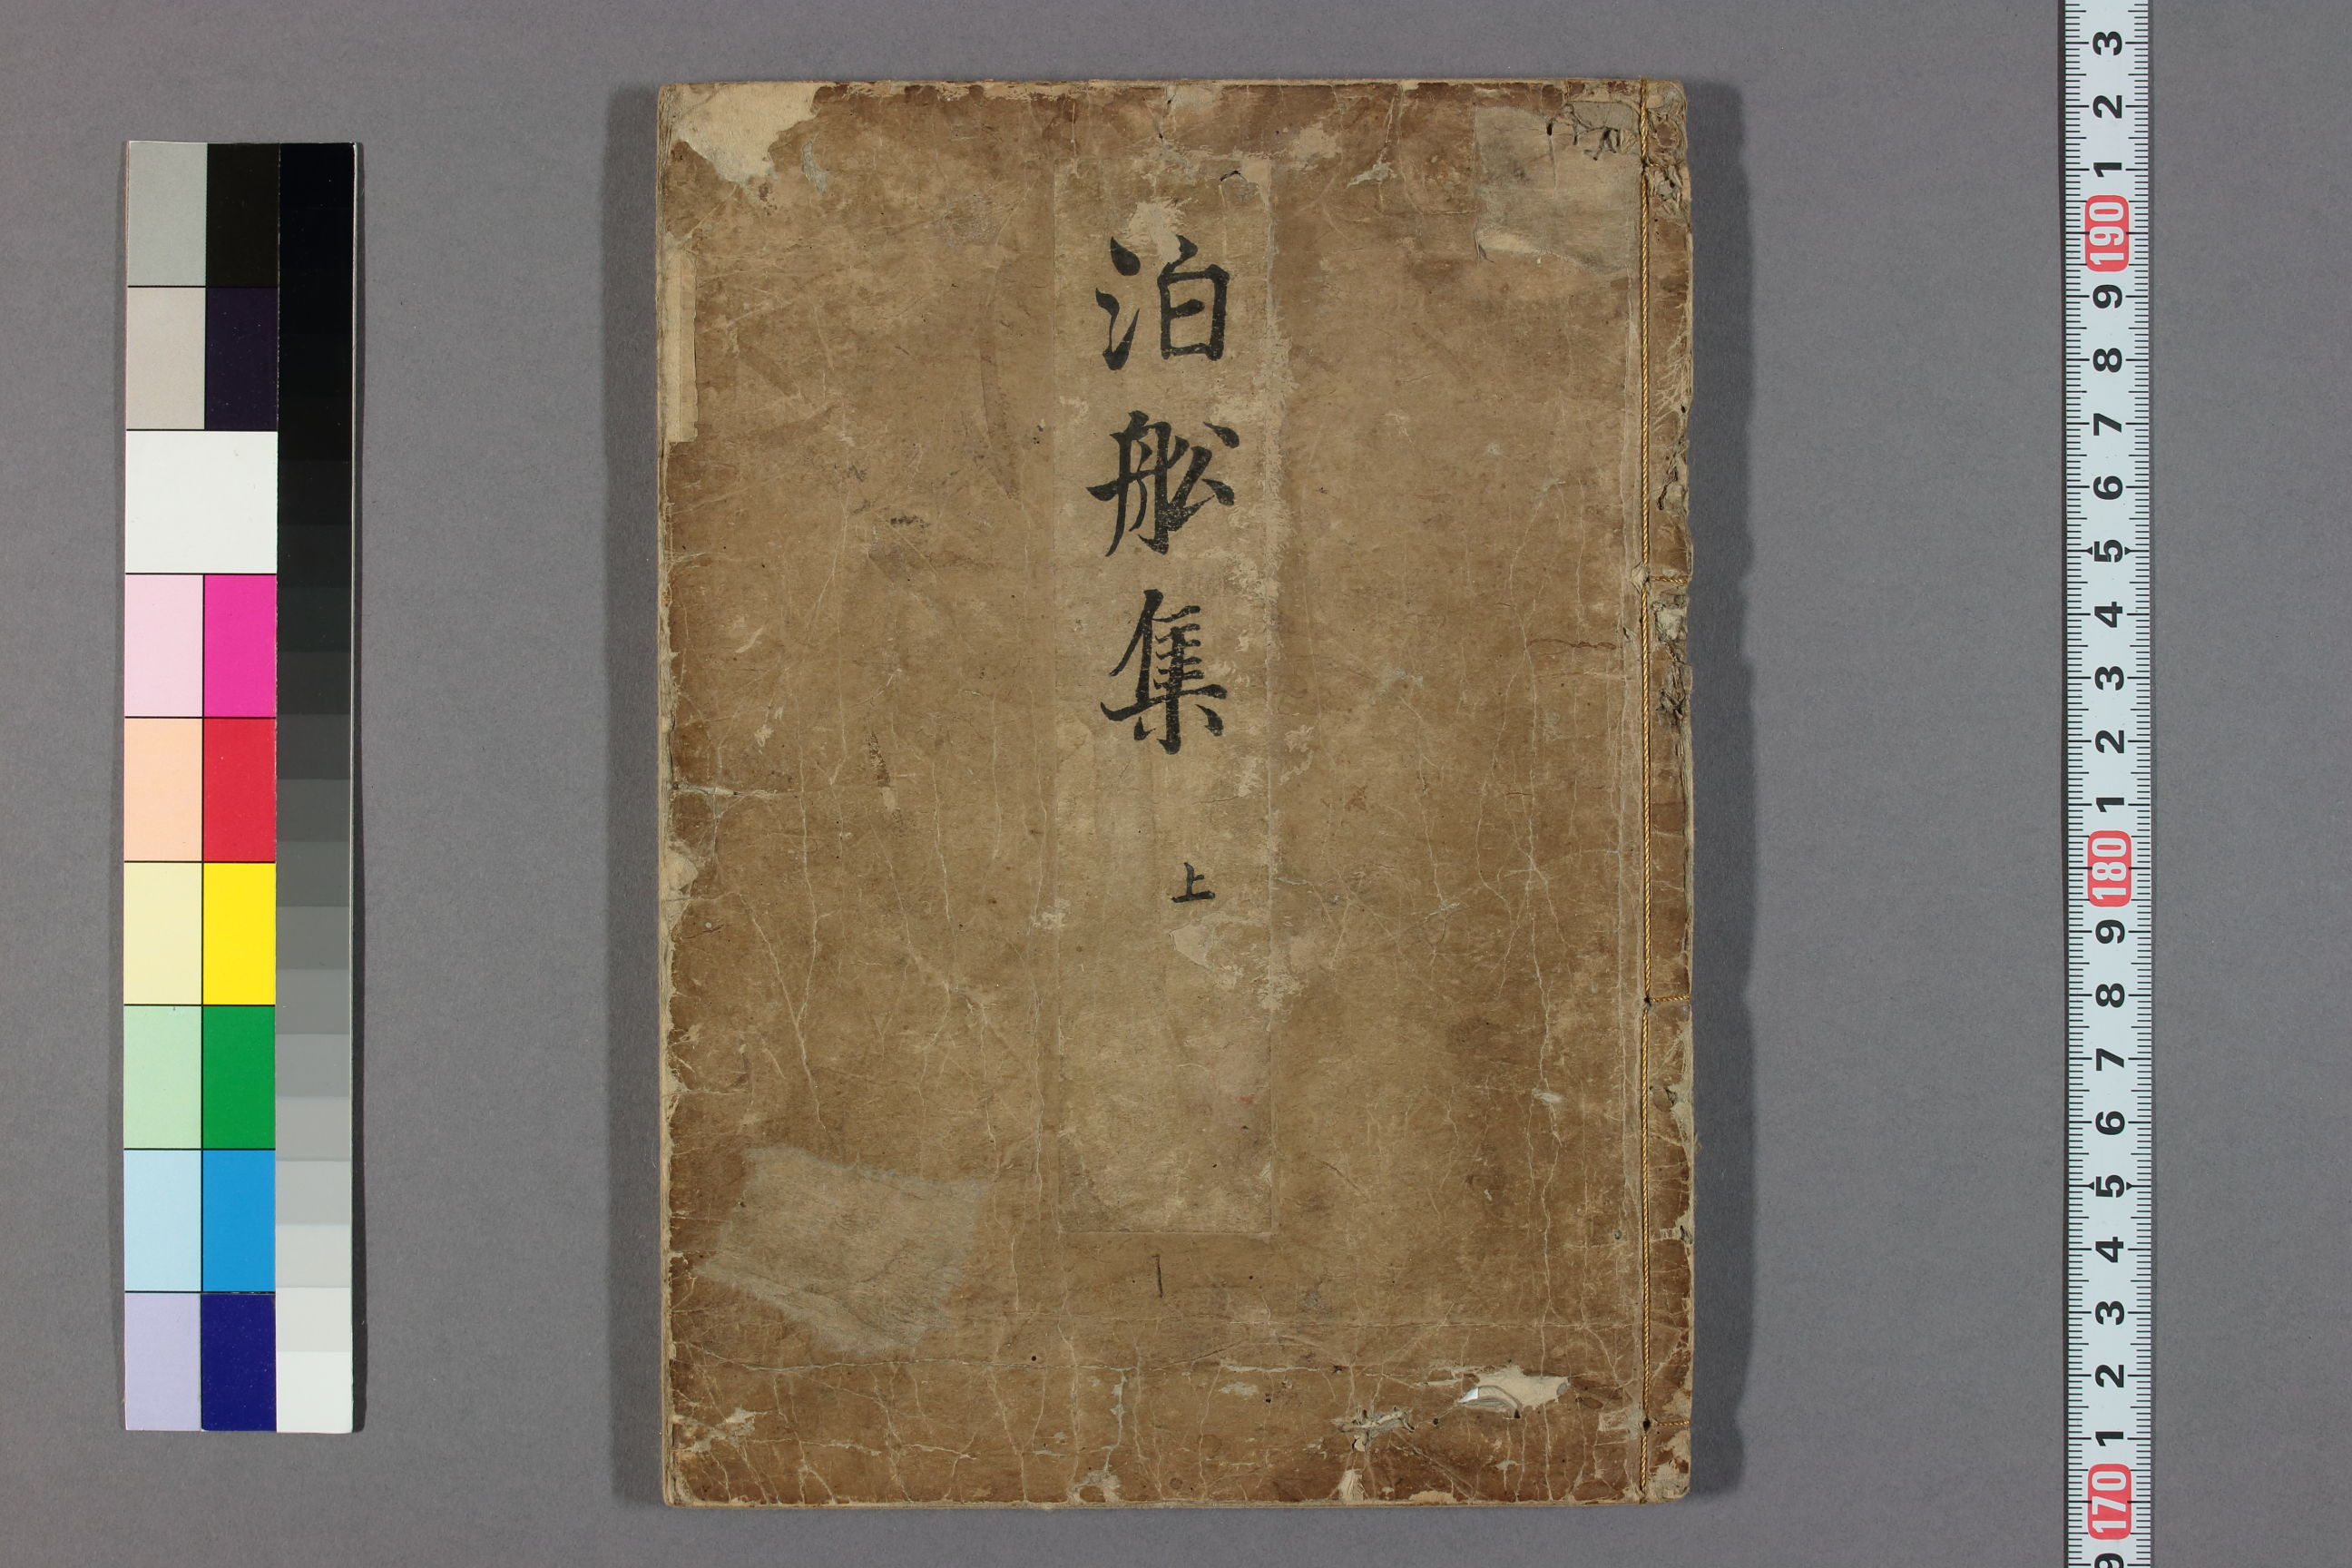 泊舩集
上
3
2
1
190
9
8
7
6
5
4
3
2
1
180
9
8
7
6
5
4
3
2
1
170
9